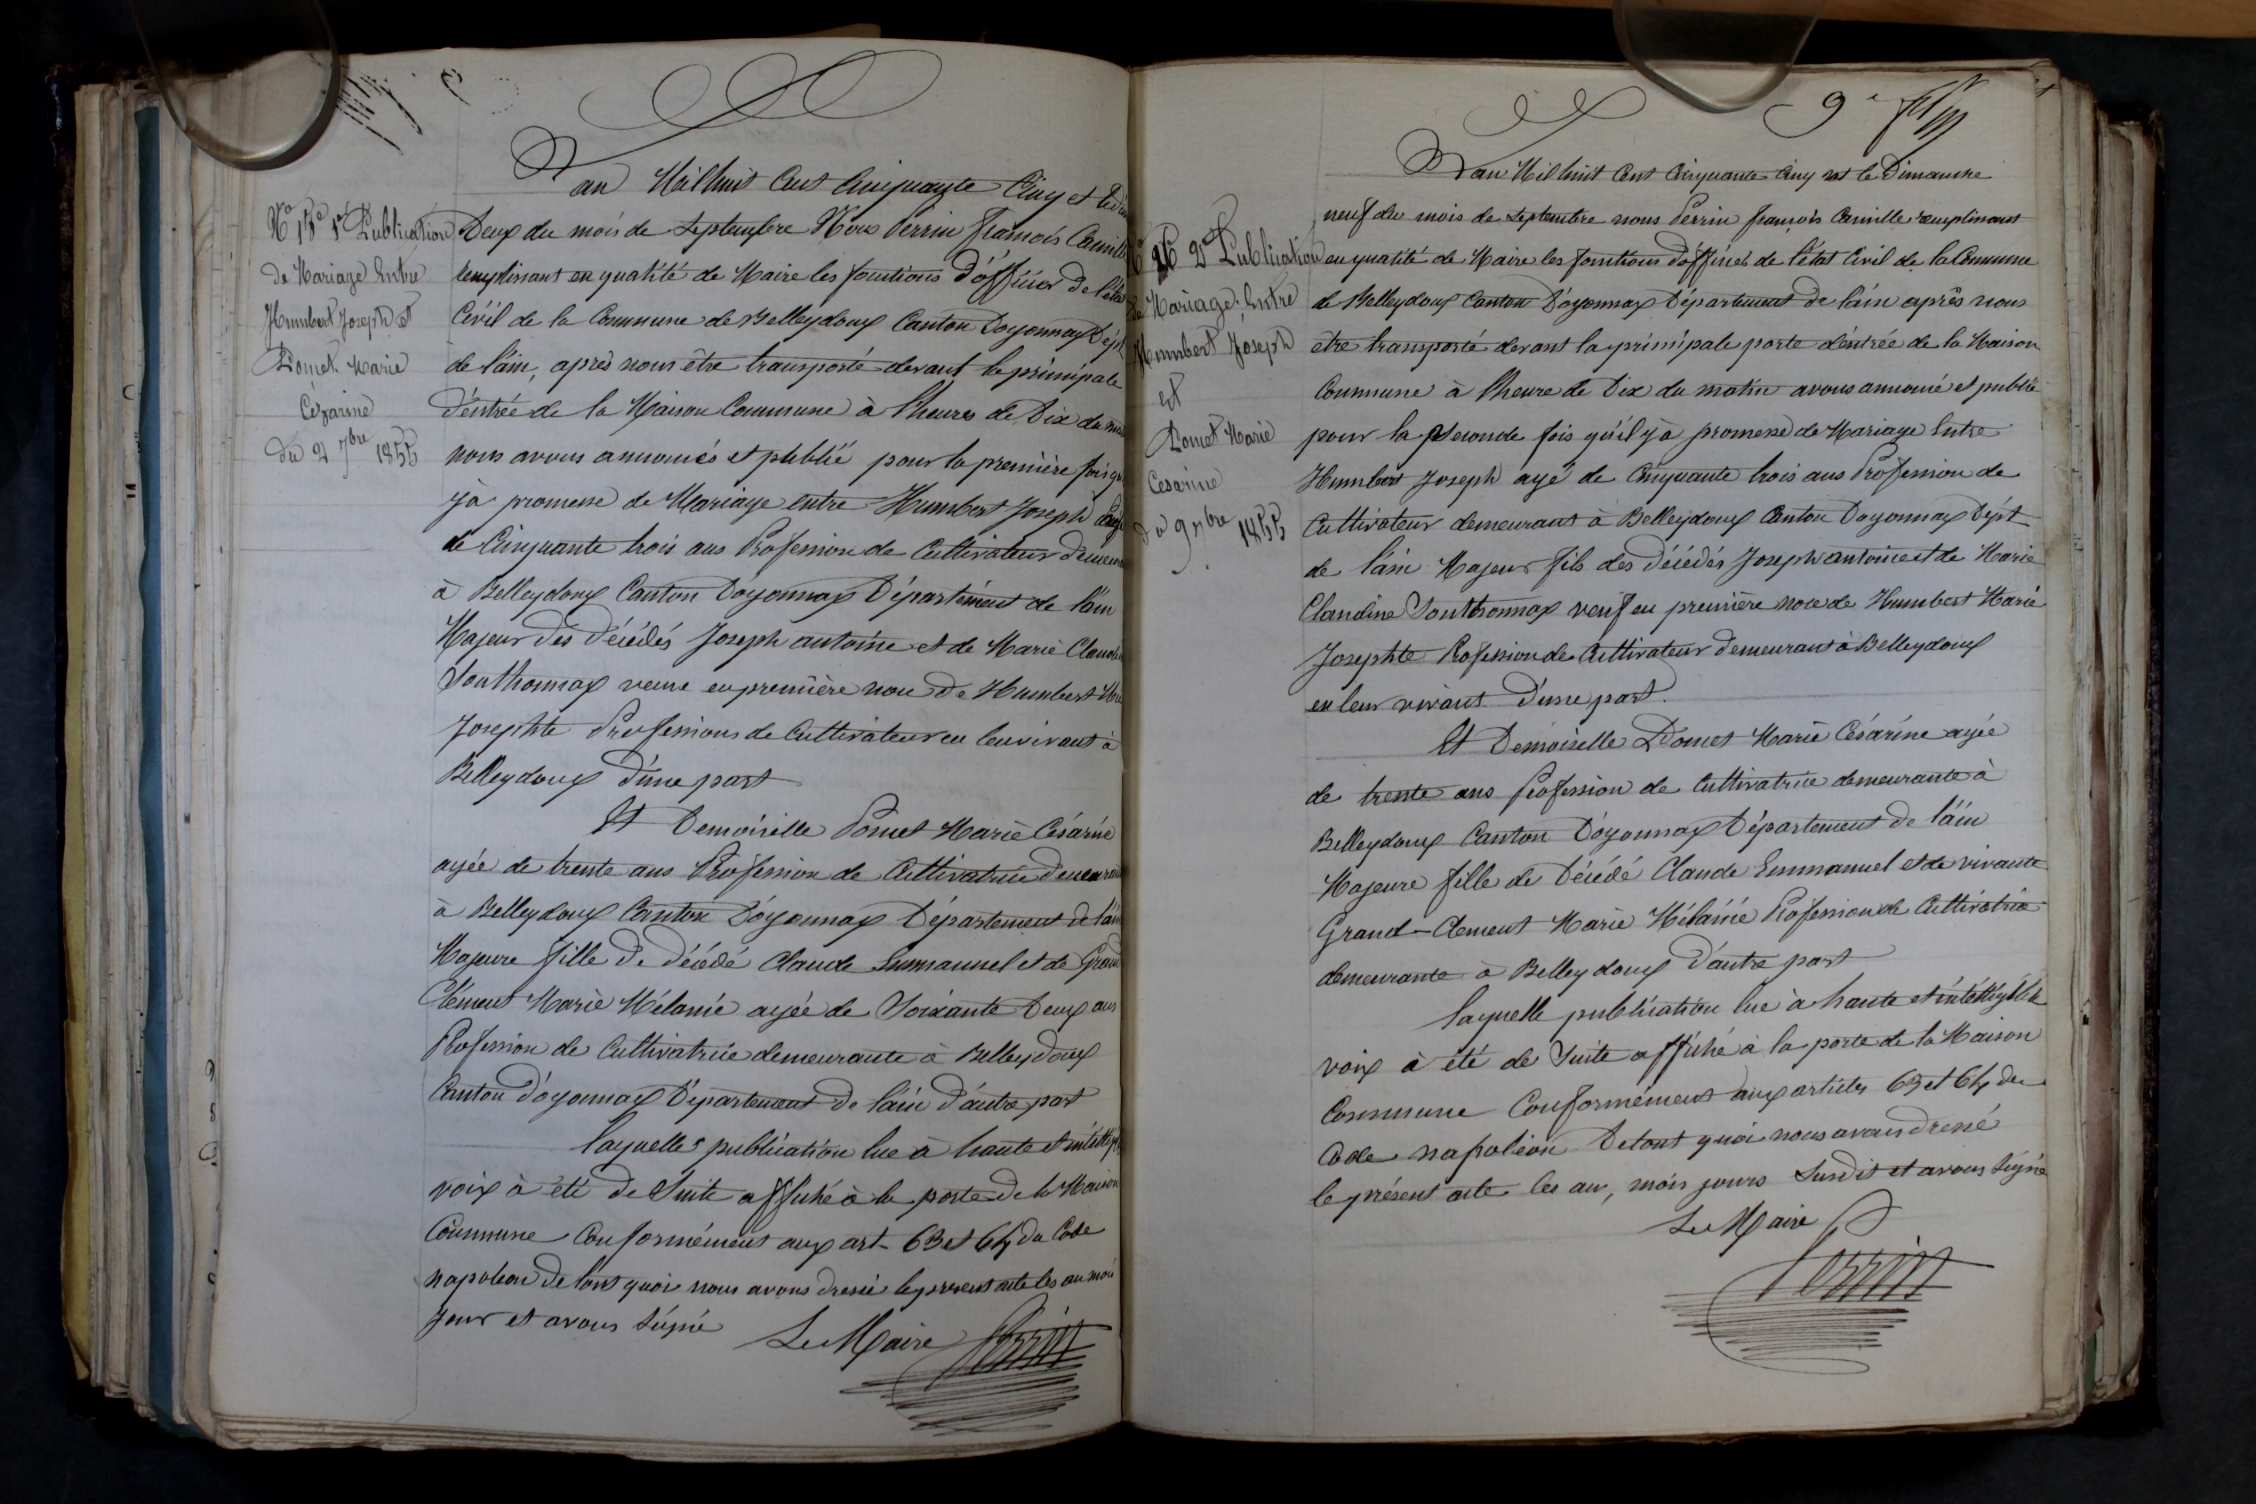 N° 15e 1re Publication
de Mariage Entre
Humbert Joseph et
Pomet Marie
Cézarine
du 2 7bre 1855
L'an Mil huit Cent Cinquante Cinq et le
Deux du mois de Septembre Nous Perrin François Camille
remplissant en qualité de Maire les fonctions d'officier de l'état
Civil de la Commune de Belleydoux Canton d'oyonnax Dépt
de l'ain, après nous être transporté devant la principale
d'éntrée de la Maison Commune à l'heures de Dix du
nous avons annoncés et publié pour la première fois
y à promesse de Mariage entre Humbert Joseph
de Cinquante trois ans Profession de Cultivateur
à Belleydoux Canton D'oyonnax Département de l'ain
Majeur dés décédés Joseph antoine et de Marie
Southonnax veuve en première noce de Humbert
Josephte Professions de Cultivateur en leur vivant à
Belleydoux d'une part
Et Demoiselle Pomet Marie Césárine
agée de trente ans Profession de Cultivatrice
à Belleydoux Canton D'óyonnax Département de l'ain
Majeure fille de décédé Claude Emmanuel et de Grand
Clément Marie Mélanie agée de Soixante Deux ans
Profession de Cultivatrice demeurante à Belleydoux
Canton d'oyonnax Département de l'ain d'autre part
laquelles publication lue à haute et
voix à été de Suite affiché à la porte de la Maison
Commune Conformément aux art- 63 et 64 du Code
napoleon De tout quoi nous avons dressé le présent acte les an mois
jour et avons Signé
Le Maire Perrin
9e
N° 16 2e Publication
de Mariage, Entre
Humbert Joseph
et
Pomet Marie
Cesarine
du 9 7bre 1855
L'an Mil huit Cent Cinquante Cinq et le Dimanche
neuf du mois de Septembre nous Perrin françois Camille remplissant
en qualité de Maire les fonctions d'officier de l'état Civil de la Commune
de Belleydoux Canton D'oyonnax Département de l'ain après nous
être transporté devant la principale porte d'éntrée de la Maison
Commune à l'heure de Dix du matin avons annoncé et publié
pour la Seconde fois qu'il y à promesse de Mariage Entre
Humbert Joseph agé de Cinquante trois ans Profession de
Cultivateur demeurant à Belleydoux Canton Doyonnax Dépt
de l'ain Majeur fils des décédés Joseph antoine et de Marie
Claudine Southonnax veuf en première noce de Humbert Marie
Josephte Profession de Cultivateur demeurant à Belleydoux
en leur vivant D'une part.
Et Demoiselle Pomet Marie Césárine agée
de trente ans Profession de Cultivatrice demeurante à
Belleydoux Canton D'oyonnax Département de l'ain
Majeure fille de Décédé Claude Emmanuel et de vivante
Grand-Clement Marie Mélanie Profession de Cultivatrice
demeurante à Belleydoux d'autre part
laquelle publication lue à haute et intelligible
voix à été de Suite affiché à la porte de la Maison
Commune Conformément aux articles 63 et 64 du
Code napoléon De tout quoi nous avons dressé
le présent acte les an, mois jours Susdit et avons Signé
Le Maire
Perrin